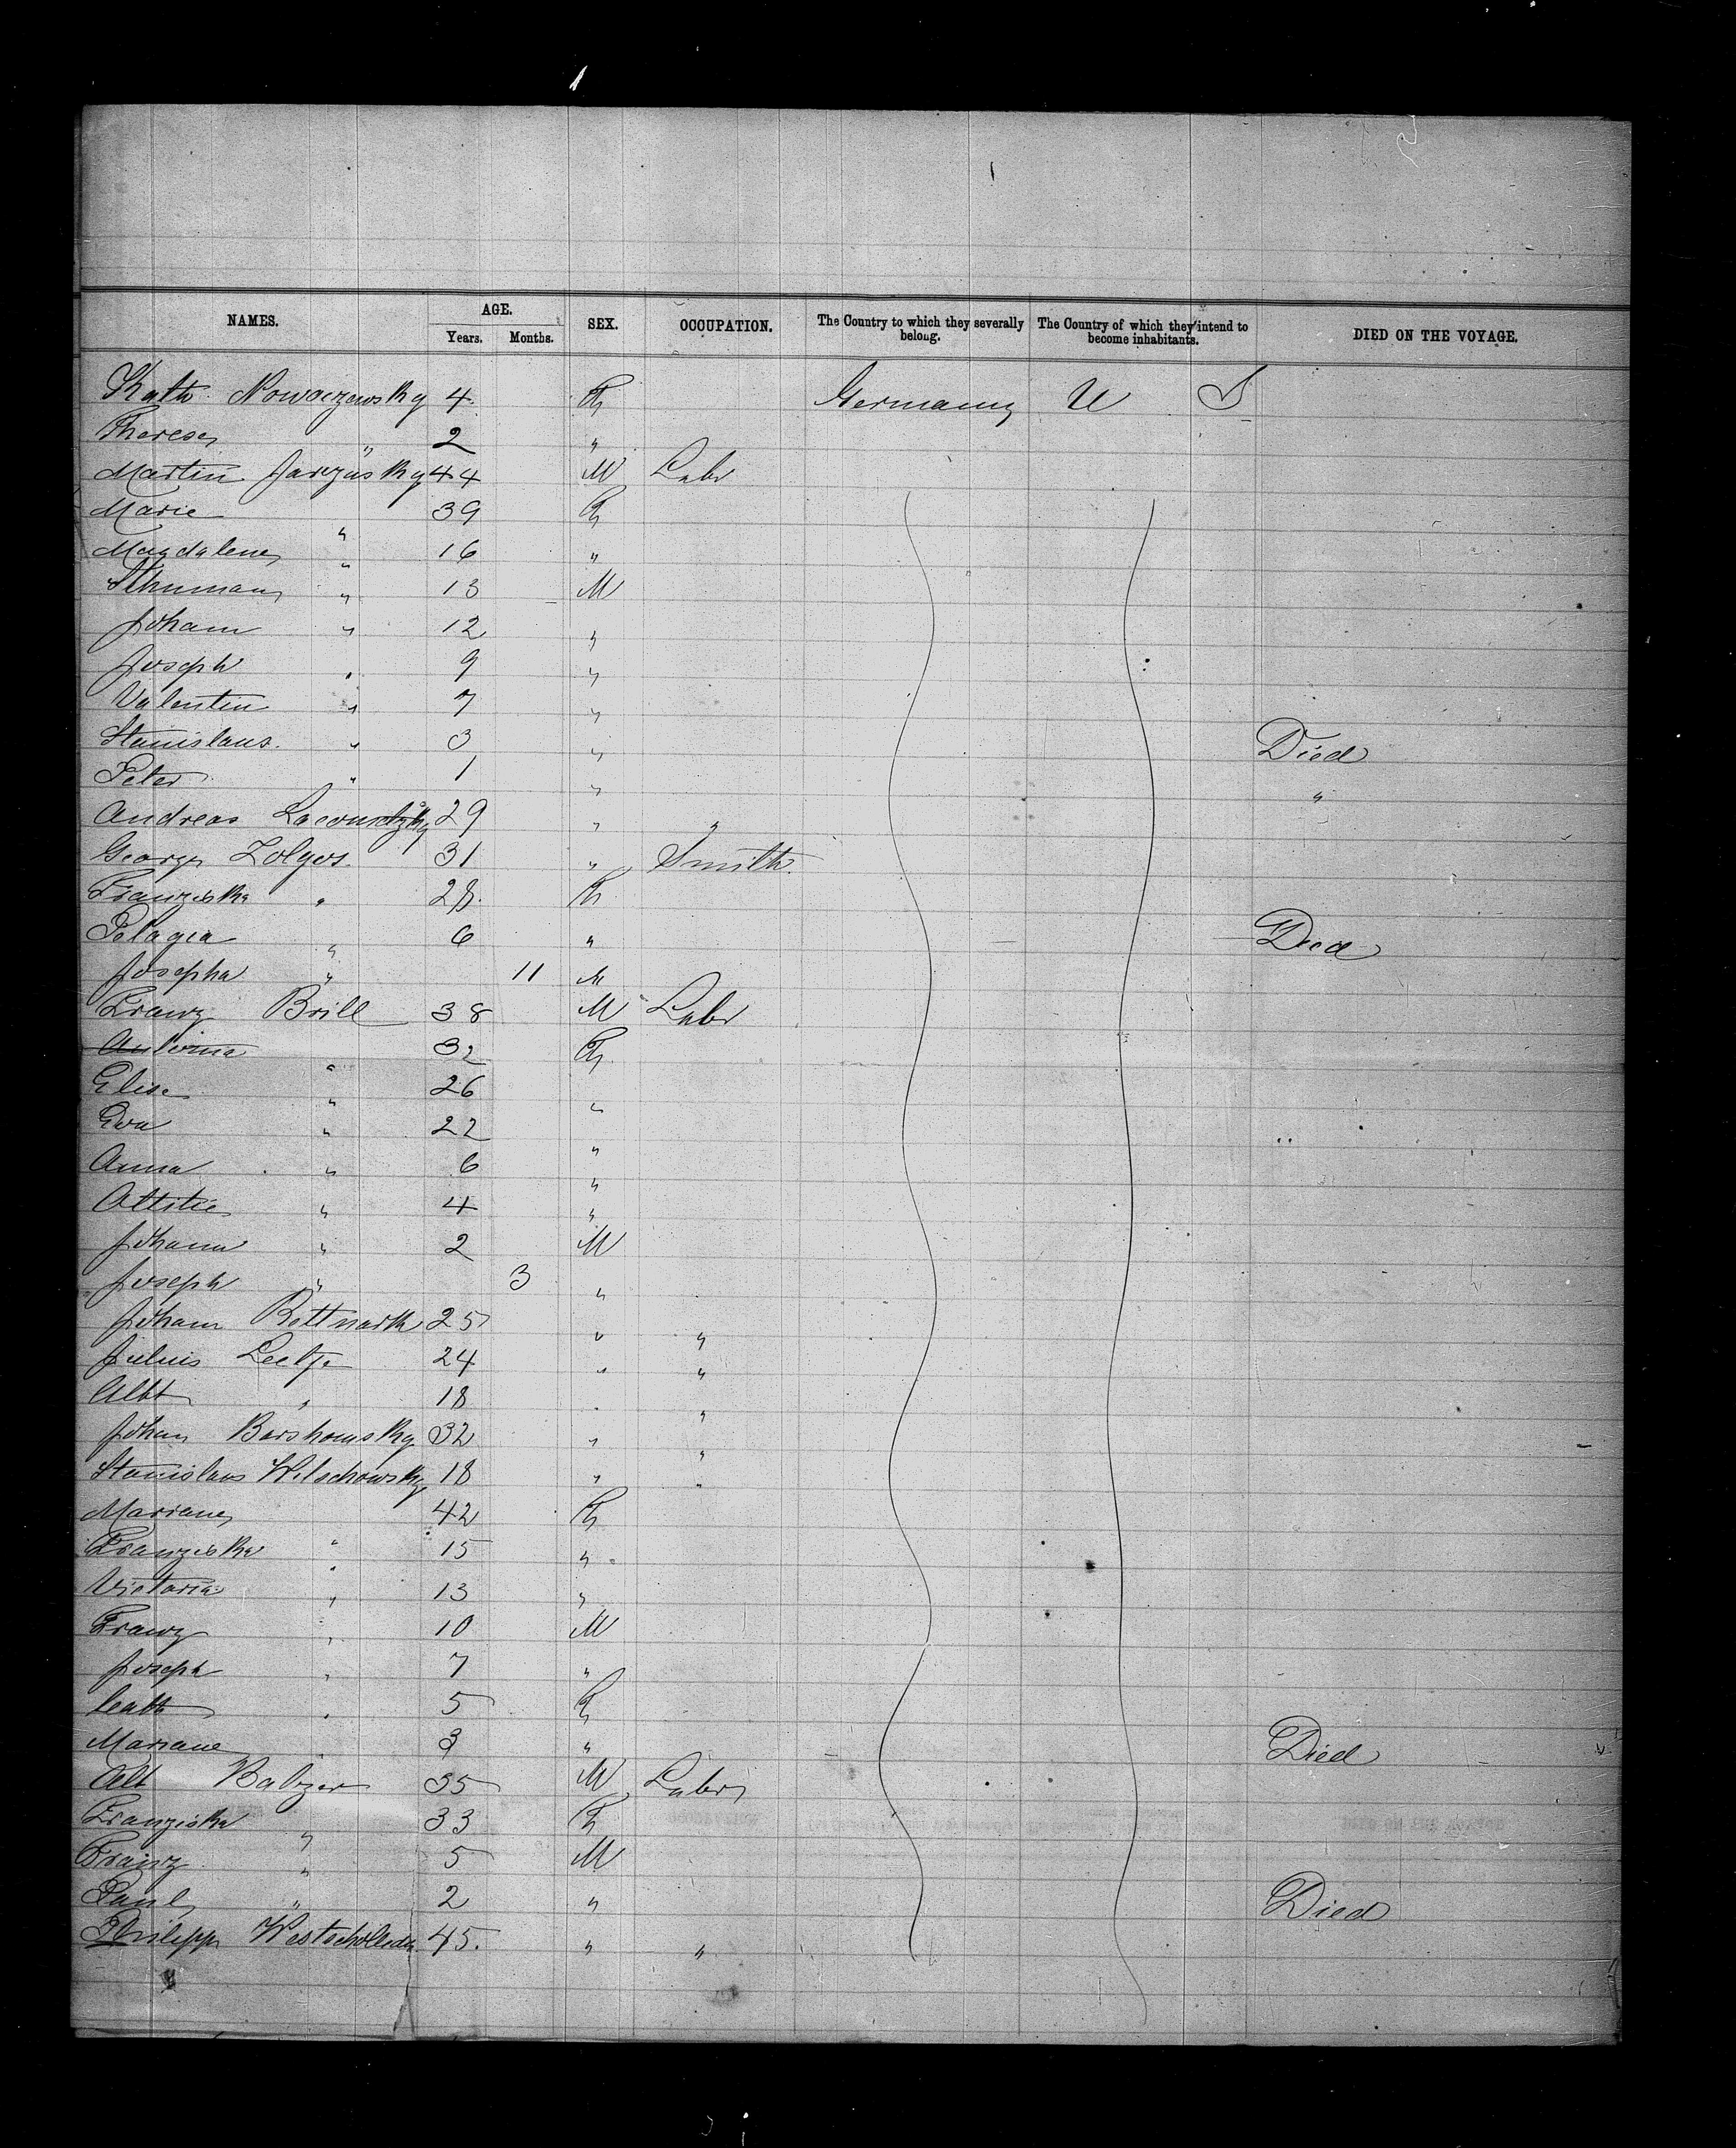 NAMES. AGE. Years. Months. SEX. OCCUPATION. The Country to which they severally belong. The Country of which they intend to become inhabitants. DIED ON THE VOYAGE.
Kath. Nowaczewsky 4 F Germany U S
Therese " 2 "
Martin Jarczusky 44 M Labr
Marie " 39 F
Magdalene " 16 "
" 13 M
Johann " 12 "
Joseph " 9 "
Valentin " 7 "
Stanislaus " 3 " Died
Peter " 1 " "
Andreas 29 " "
George Zolgos 31 " Smith
Franziska " 28 F
Pelagia " 6 " Died
Josepha " 11 M
Franz Brill 38 M Labr
Antonia " 32 F
Elise " 26 "
Eva " 22 "
Anna " 6 "
Ottilie " 4 "
Johann " 2 M
Joseph " 3 "
Johann Rottnark 25 " "
Julius Leetje 24 " "
Albt " 18 " "
Johan Borshomsky 32 " "
Stanislaus Wilschowsky 18 " "
Mariane " 42 F
Franziska " 15 "
Victoria " 13 "
Franz " 10 M
Joseph " 7 "
Cath " 5 F
Mariane " 3 " Died
Alb Balzer 35 M Labr
Franziska " 33 F
Franz " 5 M
Paul " 2 " Died
Philipp 45. " "